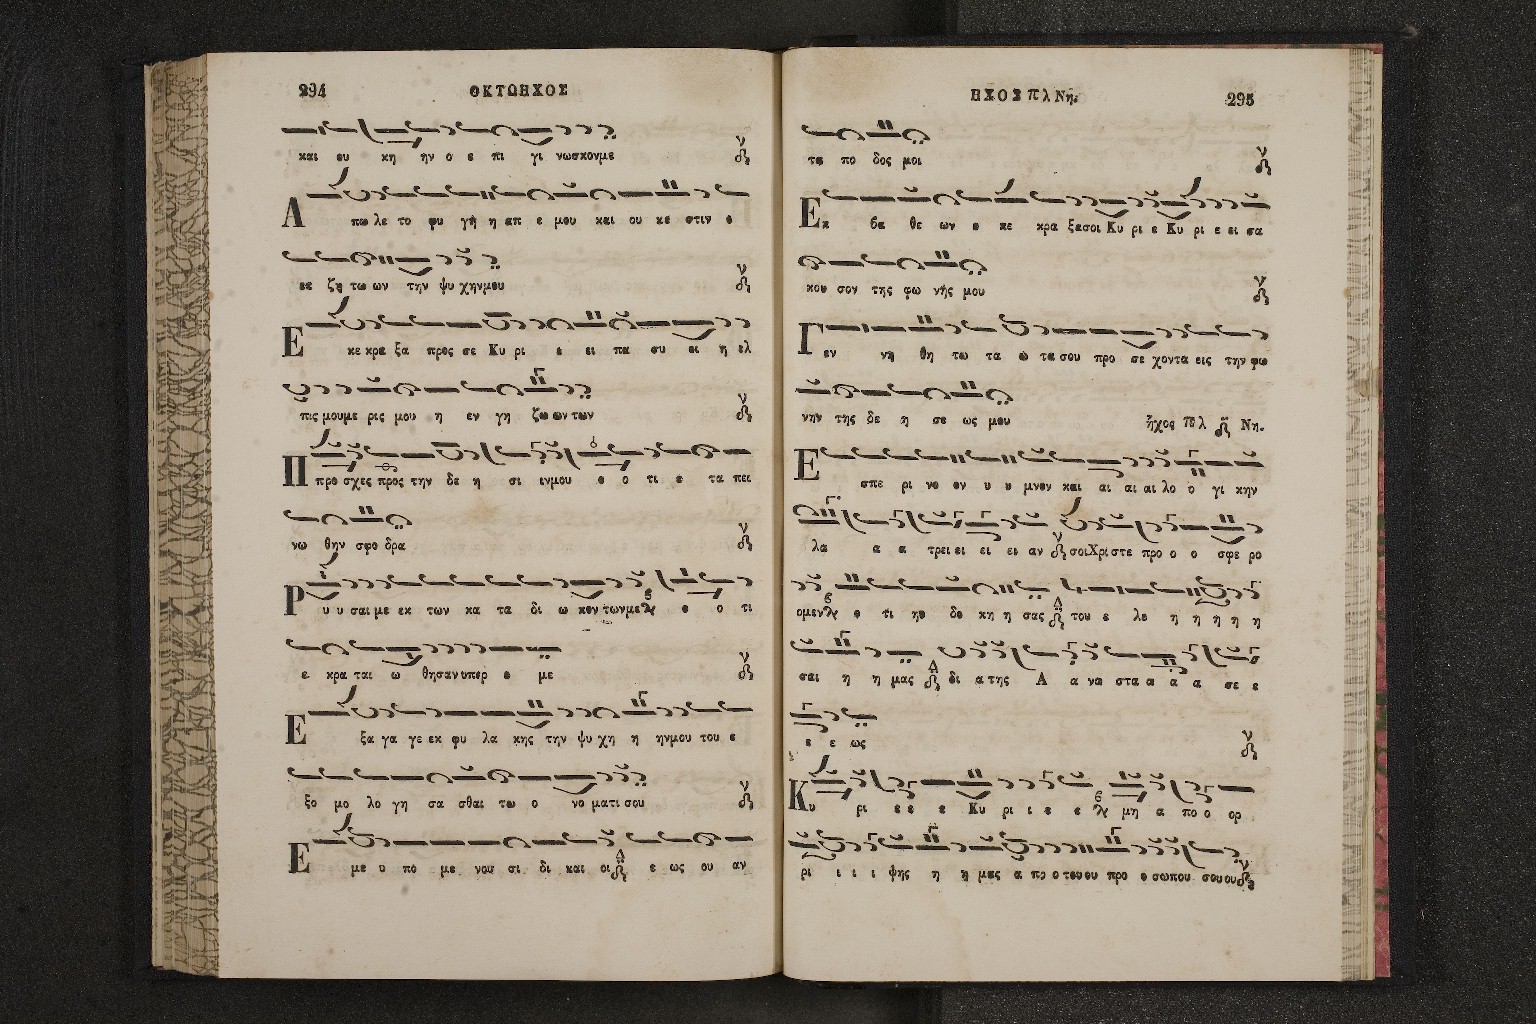 294 ΟΚΤΩΗΧΟΣ
και ου κη ην ο ε πι γι νωσκονμε
Α πω λε το φυ γὴ η απ ε μου και ου κε στιν ο
εκ ζη τω ων την ψυ χηνμου
Ε κε κρα ξα προς σε Κυ ρι ε ει πα συ ει η ελ
πις μουμε ρις μου η εν γη ζω ων των
Π προ σχες προς την δε η σι ινμου ο ο τι ε τα πει
νω θην σφο δρα
Ρ υ υ σαι με εκ των κα τα δι ω κον τωνμε ο ο τι
ε κρα ται ω θησανυπερ ε με
Ε ξα γα γε εκ φυ λα κης την ψυ χη η ηνμου του ε
ξο μο λο γη σα σθαι τω ο νο ματι σου
Ε με υ πο με νου σι δι και οι ε ως ου αν
ΗΧΟΣ πλ Νη. 295
τα πο δος μοι
Εκ βα θε ων ε κε κρα ξασοι Κυ ρι ε Κυ ρι ε ει σα
κου σον της φω νῆς μου
Γ εν νη θη τω τα ω τα σου προ σε χοντα εις την φω
νην της δε η σε ως μου ἦχος πλ Νη.
Ε σπε ρι νο ον υ υ μνον και αι αι αι λο ο γι κην
λα α α τρει ει ει ει αν σοιΧριστε προ ο ο σφε ρο
ομεν ο τι ηυ δο κη η σας του ε λε η η η η η
σαι η η μας δι α της Α α να στα α α α σε ε
ε ε ως
Κυ ρι ε ε ε Κυ ρι ι ε ε μη α πο ο ορ
ρι ι ι ι ψης η η μας α πο ο τουου προ ο σωπου σουου